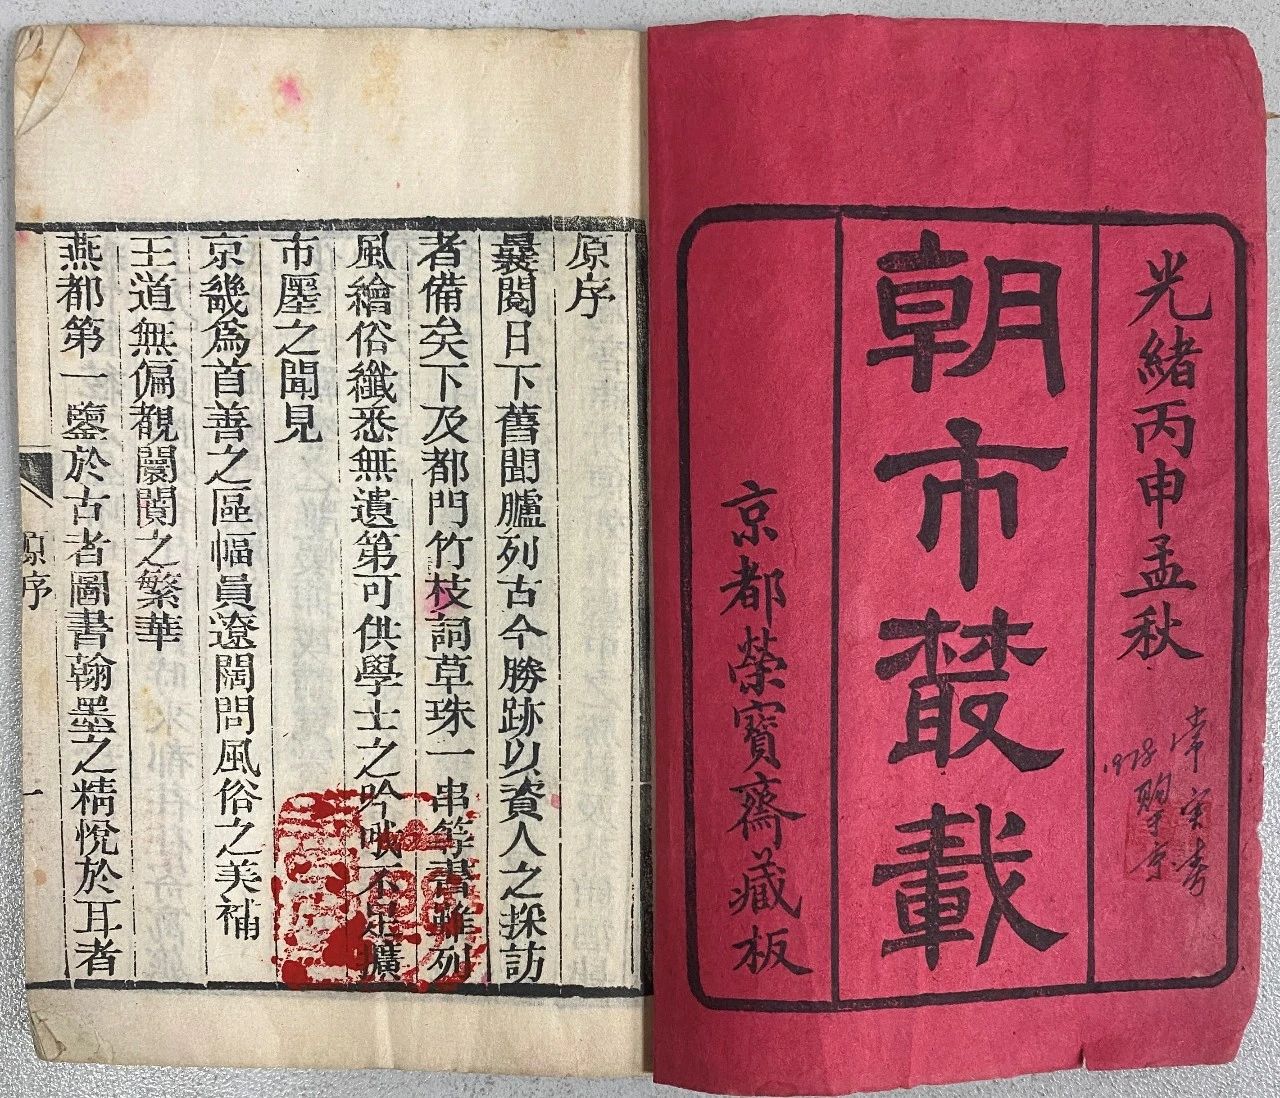 光緒丙申孟秋
朝市叢載
京都榮寶齋藏板
1978
購京
原序
曩閱日下舊聞臚列古今勝跡以資人之採訪
者備矣下及都門竹枝詞草珠一串等書雖列
風繪俗纖悉無遺第可供學士之吟哦不足擴
市廛之聞見
京畿爲首善之區幅員遼闊問風俗之美補
王道無偏覩闤闠之繁華
燕都第一鑒於古者圖書翰墨之精悅於耳者
原序
一